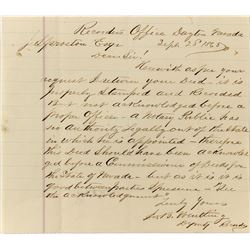 Recorders Office Dayton Nevada
Sept. 25th 1865
J. Sponston Esqr
Dear Sir!
Herewith as per your
request I return your Deed - it is
properly Stamped and Recorded
but not acknowledged before a
proper Officer - a Notary Public has
no Authority legally out of the State
in which he is appointed - therefore
this Deed Should have been acknowled
ged before a Commissioner of Deeds for
the State of Nevada - but as it is it is
good between parties
the acknowledgment
Truly Yours
Deputy